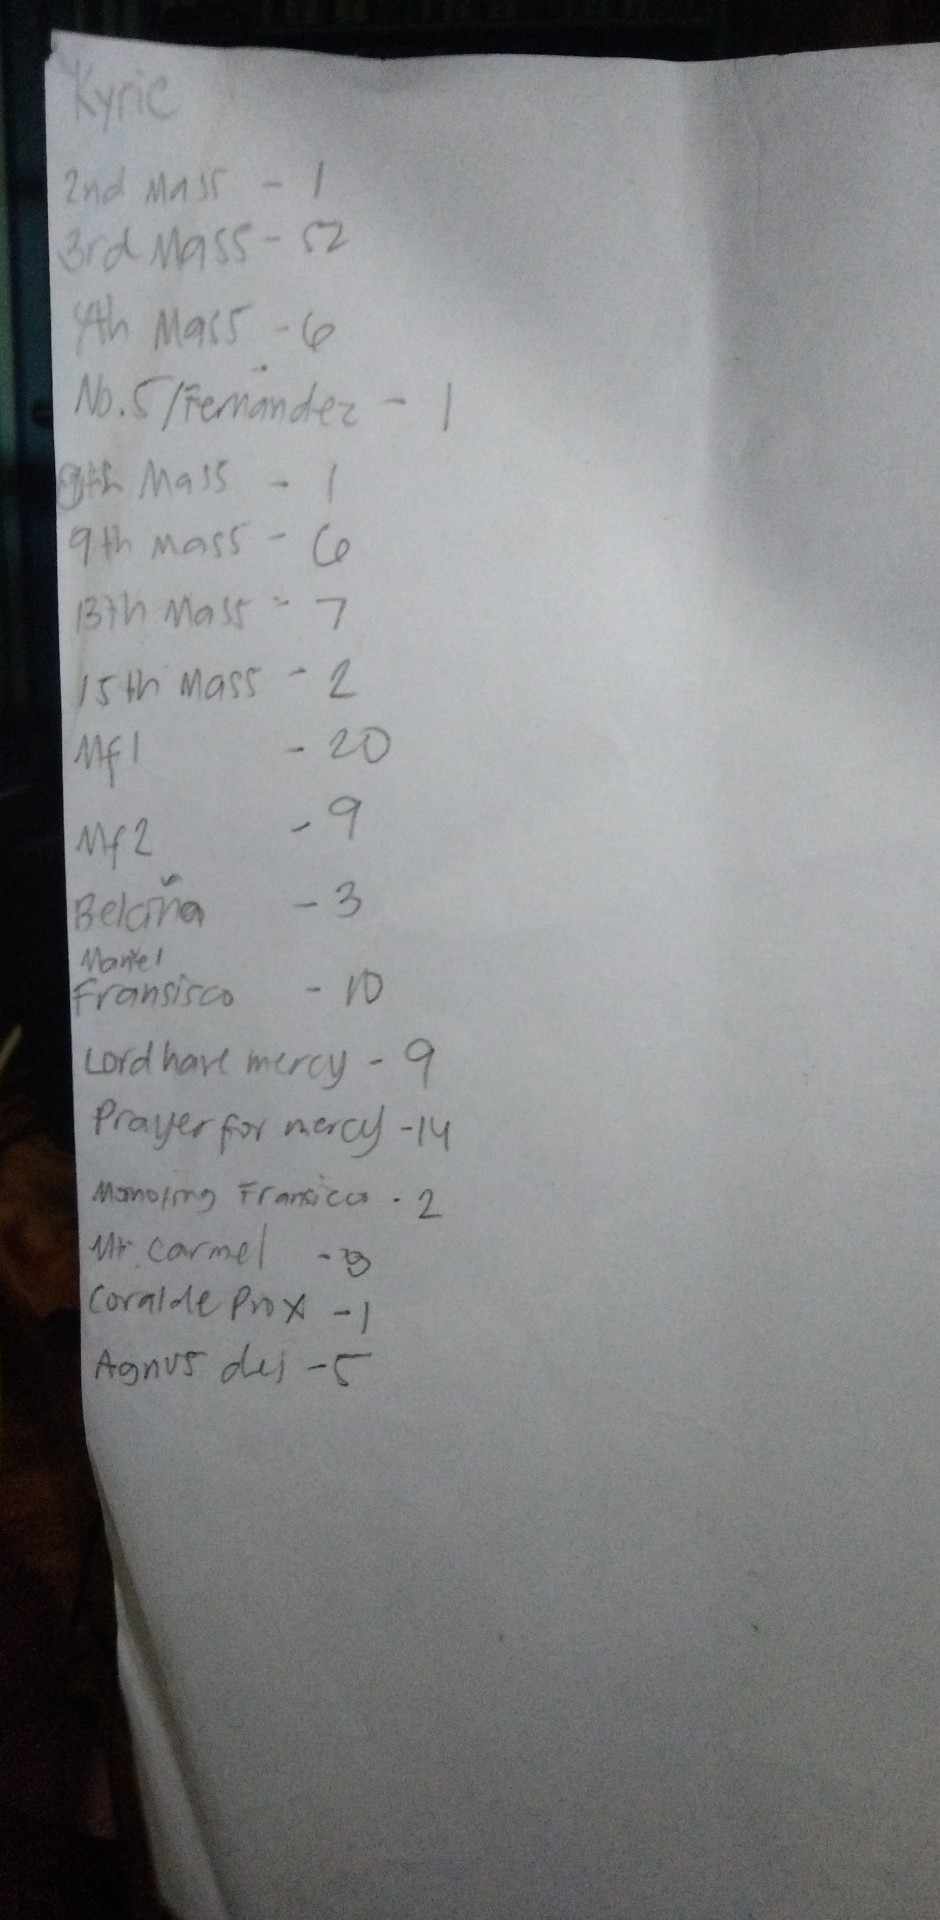 Kyrie
2nd Mass - 1
3rd Mass - 52
4th Mass - 6
No. 5 / Fernandez - 1
8th Mass - 1
9th Mass - 6
13th Mass - 7
15th Mass - 2
Mf1 - 20
Mf2 - 9
Belciña - 3
Fransisco - 10
Lord have mercy - 9
Prayer for mercy - 14
Fransico - 2
Mt. Carmel - 3
Coralde Prox - 1
Agnus dei - 5